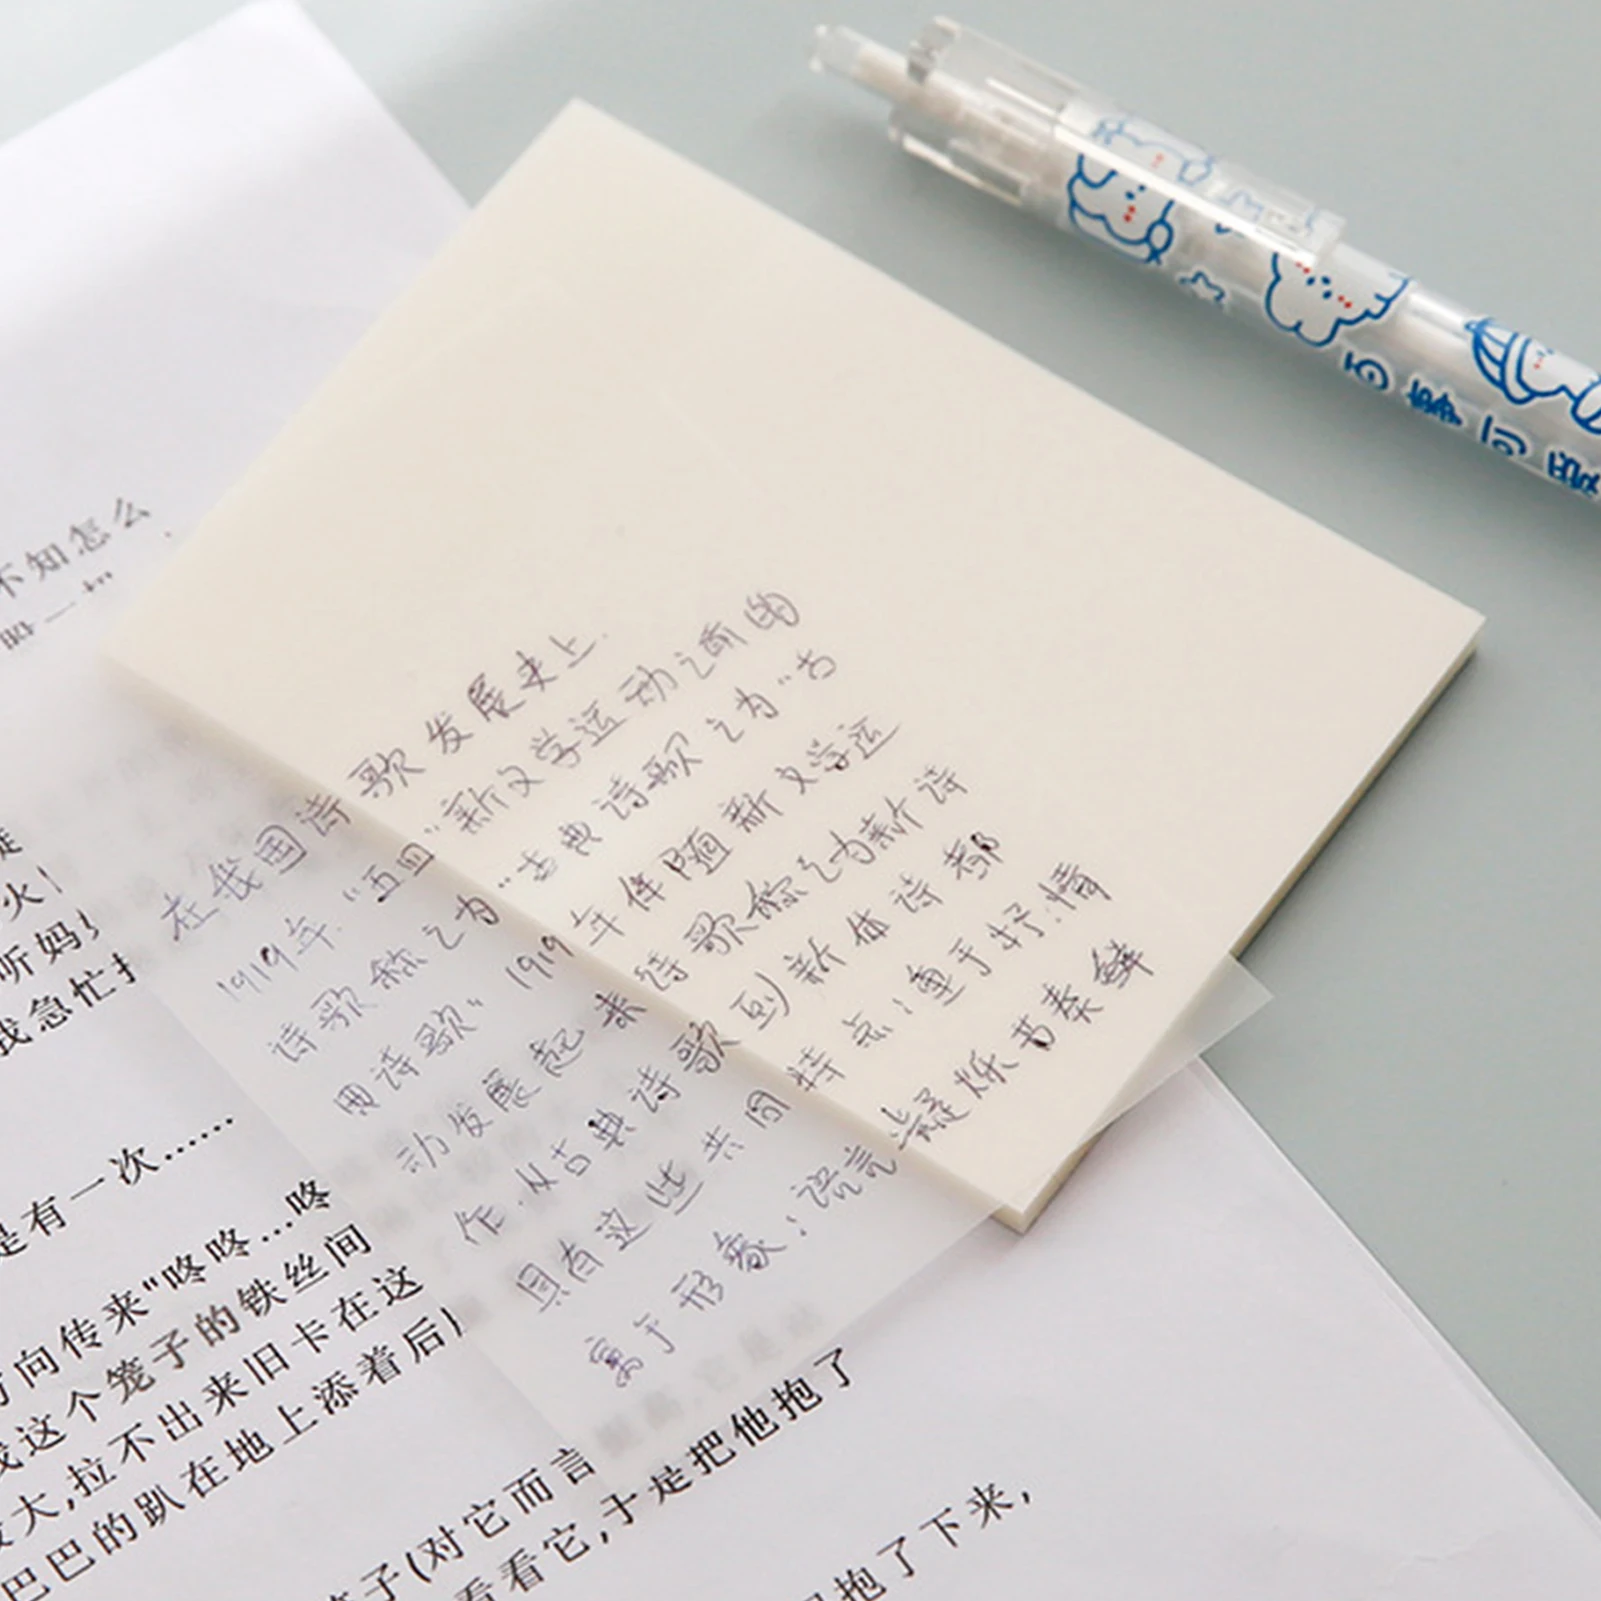 不知怎么
在我国诗歌发展史上.
1919年."五四"新文学运动之前的
诗歌称之为"古典诗歌之为"古
用诗歌" 1919年伴随新文学运
动发展起来诗歌称之为新诗
作.从古典诗歌到新体诗都
具有这些共同特点:重于抒情
寓于形象:语言凝烁节奏鲜
火!
听妈!
我急忙扌
是有一次……
方向传来"咚咚…咚
我这个笼子的铁丝间
大,拉不出来旧卡在这
巴巴的趴在地上添着后
笼子(对它而言
看看它,于是把他抱了
抱了下来,
百事可爱